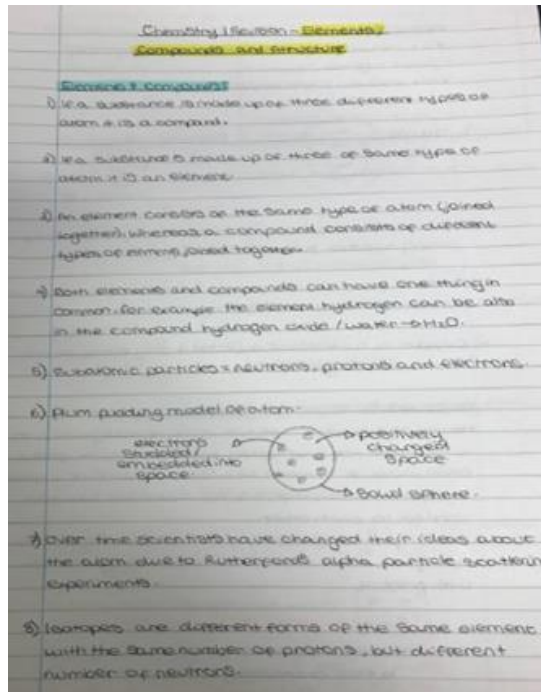 Chemistry Revision - Elements,
Compounds and structure
Elements & Compounds
1) If a substance is made up of three different types of
atom it is a compound.
2) If a substance is made up of three of same type of
atom it is an element.
3) An element consists of the same type of atom (joined
together), whereas a compound consists of different
types of element joined together.
4) Both elements and compounds can have one thing in
common, for example the element hydrogen can be also
in the compound hydrogen oxide / water → H2O.
5) Subatomic particles = neutrons, protons and electrons.
6) Plum pudding model of atom.
electrons
studded/
embedded into
space.
positively
charged
space
Solid sphere.
7) Over time scientists have changed their ideas about
the atom due to Rutherfords alpha particle scattering
experiments.
8) Isotopes are different forms of the same element
with the same number of protons, but different
number of neutrons.